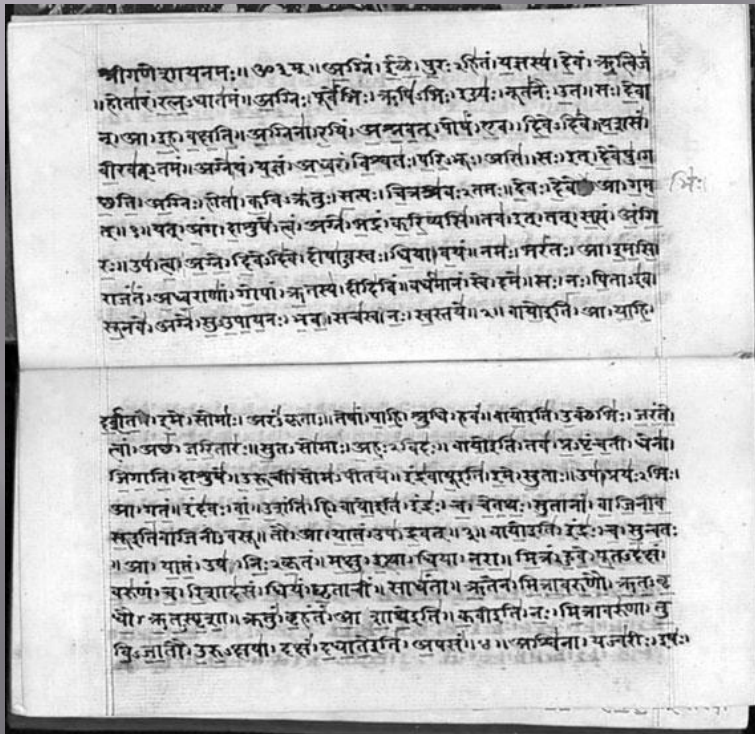 श्रीगणेशायनमः॥ ॐ३म्॥ अ॒ग्निं। ई॒ळे॒। पु॒रःऽहि॑तं। य॒ज्ञस्य॑। दे॒वं। ऋ॒त्विजं॑
॥होता॑रं। र॒त्न॒ऽधात॑मं॥ अ॒ग्निः। पूर्वे॑भिः। ऋषि॑ऽभिः। ईड्यः॑। नूत॑नैः। उ॒त॥ सः। दे॒वा
न्। आ। इ॒ह। व॒क्ष॒ति॒॥ अ॒ग्निना॑। र॒यिं। अ॒श्न॒व॒त्। पोषं॑। ए॒व। दि॒वेऽदि॑वे॥ य॒शसं॑
वी॒रव॑त्ऽतमं॥ अग्ने॑। यं। य॒ज्ञं। अ॒ध्व॒रं। वि॒श्वतः॑। प॒रि॒ऽभूः। असि॑॥ सः। इत्। दे॒वेषु॑। ग
च्छ॒ति॒॥ अ॒ग्निः। होता॑। क॒विऽक्र॑तुः। स॒त्यः। चि॒त्रश्र॑वःऽतमः॥ दे॒वः। दे॒वे आ। ग॒म॒
भिः।
त्॥१॥ यत्। अं॒ग। दा॒शुषे॑। त्वं। अग्ने॑। भ॒द्रं। क॒रि॒ष्यसि॑॥ तव॑। इत्। तत्। स॒त्यं। अं॒गि॒
रः॒॥ उप॑। त्वा॒। अ॒ग्ने॒। दि॒वेऽदि॑वे। दोषा॑ऽवस्तः। धि॒या। व॒यं॥ नमः॑। भरं॑तः। आ। इ॒म॒सि॒॥
राजं॑तं। अ॒ध्व॒राणां॑। गो॒पां। ऋ॒तस्य॑। दीदि॑विं॥ वर्ध॑मानं। स्वे। दमे॑॥ सः। नः॒। पि॒ताऽइ॑व।
सू॒नवे॑। अग्ने॑। सु॒ऽउ॒पा॒य॒नः। भ॒व॒॥ सच॑स्व। नः॒। स्व॒स्तये॑॥२॥ वायो॒इति॑। आ। या॒हि॒।
द॒र्श॒त॒। इ॒मे। सोमाः॑। अरं॑ऽकृताः॥ तेषां॑। पा॒हि॒। श्रु॒धि। हवं॑॥ वायो॒इति॑। उ॒क्थेभिः॑। ज॒रं॒ते॒।
त्वां। अच्छ॑। ज॒रि॒तारः॑॥ सु॒तऽसो॑माः। अ॒हः॒ऽविदः॑॥ वायो॒इति॑। तव॑। प्र॒ऽपृं॒च॒ती। धेना॑।
जि॒गा॒ति॒। दा॒शुषे॑॥ उ॒रू॒ची। सोम॑ऽपीतये॥ इंद्र॑वायू॒इति॑। इ॒मे। सु॒ताः॥ उप॑। प्रयः॑ऽभिः।
आ। ग॒तं॒॥ इंद॑वः। वां॒। उ॒शंति॑। हि॥ वायो॒इति॑। इंद्रः॑। च॒। चे॒त॒थः॒। सु॒तानां॑। वा॒जि॒नी॒व॒
सू॒इति॑वाजिनीऽवसू॥ तौ। आ। या॒तं॒। उप॑। द्र॒वत्॥३॥ वायो॒इति॑। इंद्रः॑। च॒। सु॒न्व॒तः
॥ आ। या॒तं॒। उप॑। निः॒ऽकृ॒तं॥ म॒क्षु। इ॒त्था। धि॒या। न॒रा॒॥ मि॒त्रं। हु॒वे॒। पू॒तऽद॑क्षं।
वरु॑णं। च॒। रि॒शाद॑सं॥ धियं॑। घृ॒ताचीं॑। साधं॑ता॥ ऋ॒तेन॑। मि॒त्रा॒व॒रु॒णौ॒। ऋ॒त॒ऽवृ॒
धौ॒। ऋ॒त॒ऽस्पृ॒शा॒॥ क्रतुं॑। बृ॒हंतं॑। आ॒शा॒थे॒इति॑॥ क॒वीइति॑। नः॒। मि॒त्रावरु॑णा। तु॒
वि॒ऽजा॒तौ। उ॒रु॒ऽक्षया॑॥ दक्षं॑। द॒धा॒ते॒इति॑। अ॒पसं॑॥४॥ अश्वि॑ना। यज्व॑रीः। इषः॑।